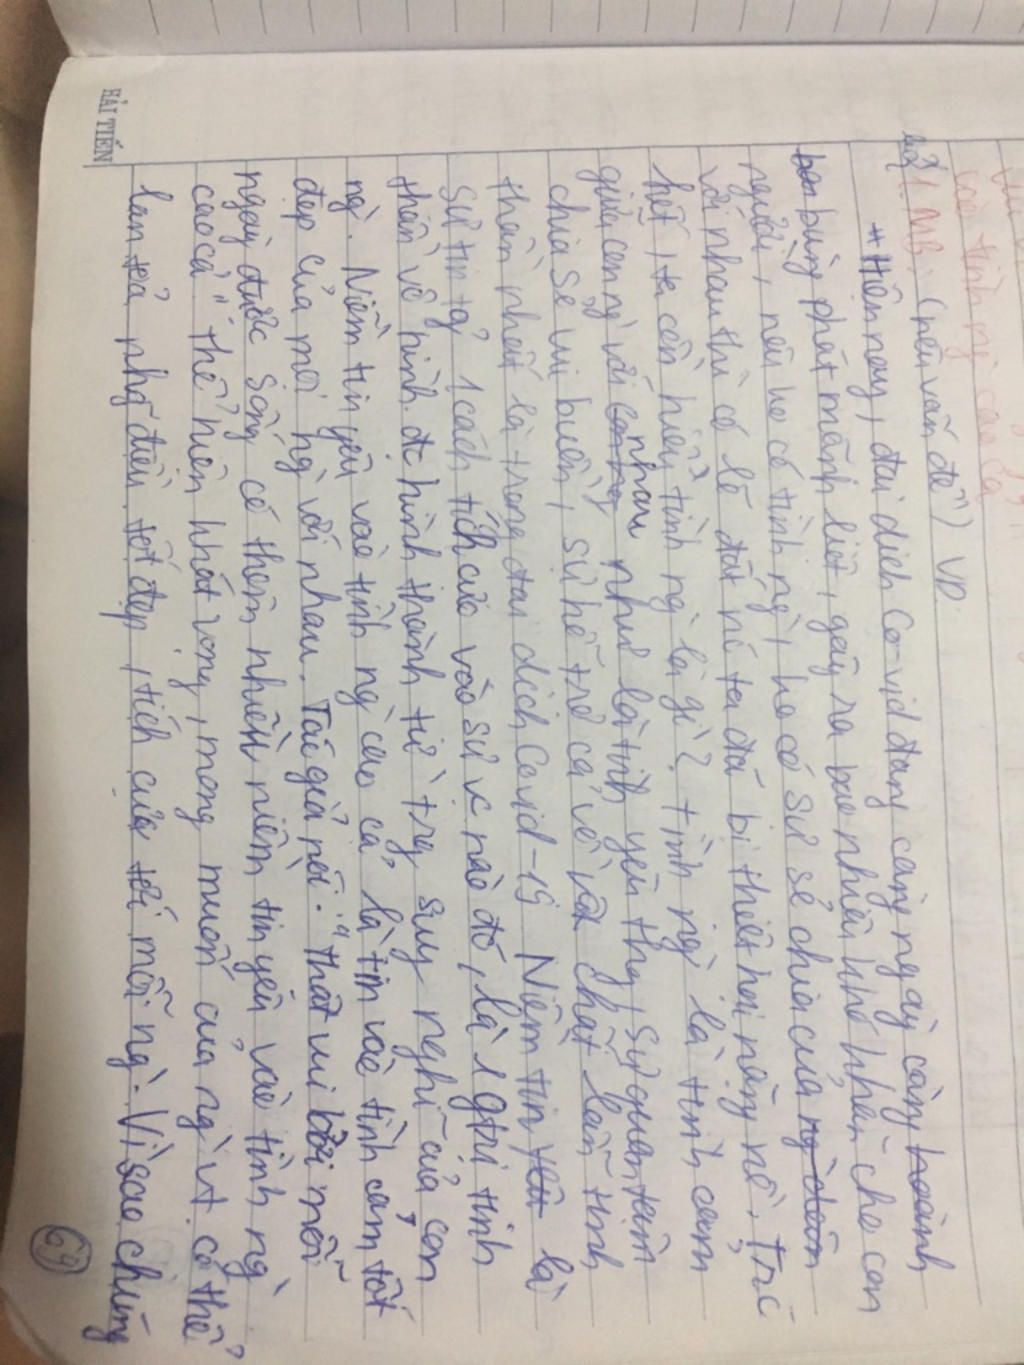 vào tình ng cao cả
1. MB: (nêu vấn đề) VD
" Hiện nay, đại dịch Co-vid đang càng ngày càng hoành
bùng phát mãnh liệt, gây ra bao nhiêu khó khăn cho con
người, nếu ko có tình ng`, ko có sự sẻ chia của ng`
với nhau thì có lẽ đất nc ta đã bị thiệt hại nặng nề. Trc
hết, ta cần hiểu tình ng` là gì? Tình ng` là tình cảm
giữa con ng` với nhau như là tình yêu thg, sự quan tâm
chia sẻ vui buồn, sự hỗ trợ cả về vật chất lẫn tinh
thần nhất là trong đại dịch Covid-19 Niềm tin yêu là
sự tin tg 1 cách tích cực vào sự vc nào đó, là 1 giá tị tinh
thần vô hình đc hình thành từ trg suy nghĩ của con
ng`. Niềm tin yêu vào tình ng` cao cả là tin vào tình cảm tốt
đẹp của mọi ng` với nhau. Tác giả nói: "Thật vui bởi mỗi
ngày được sống có thêm nhiều niềm tin yêu vào tình ng`
cao cả" thể hiện khát vọng, mong muốn của ng` vt có thể
lan tỏa nhg điều tốt đẹp, tích cực tới mỗi ng`. Vì sao chúng
HẢI TIẾN
67